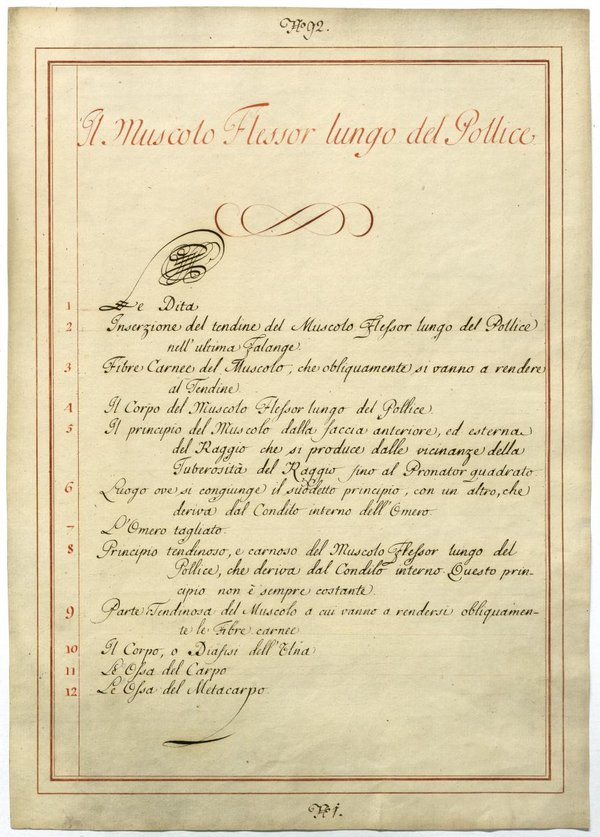 No 92.
Il Muscolo Flessor lungo del Pollice
1 Le Dita
2 Inserzione del tendine del Muscolo Flessor lungo del Pollice
nell'ultima Falange.
3 Fibre Carnee del Muscolo, che obliquamente si vanno a rendere
al Tendine.
4 Il Corpo del Muscolo Flessor lungo del Pollice.
5 Il principio del Muscolo dalla faccia anteriore, ed esterna
del Raggio che si produce dalle vicinanze della
Tuberosità del Raggio fino al Pronator quadrato.
6 Luogo ove si congiunge il suddetto principio, con un altro, che
deriva dal Condilo interno dell'Omero.
7 L'Omero tagliato.
8 Principio tendinoso, e carnoso del Muscolo Flessor lungo del
Pollice, che deriva dal Condilo interno. Questo prin-
cipio non è sempre costante.
9 Parte Tendinosa del Muscolo a cui vanno a rendersi obliquamen-
te le Fibre carnee
10 Il Corpo, o Diafisi dell'Ulna
11 Le Ossa del Carpo
12 Le Ossa del Metacarpo.
No 1.